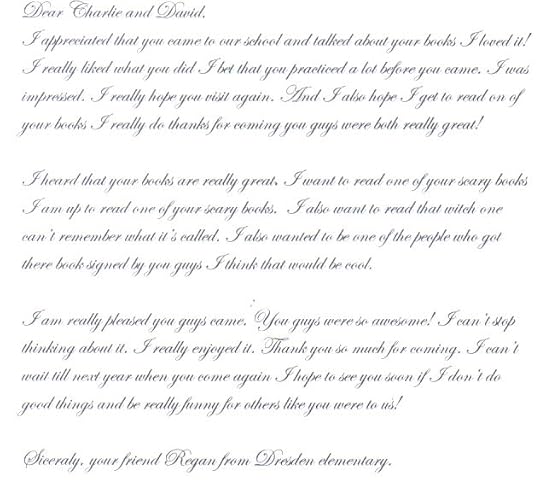 Dear Charlie and David,
I appreciated that you came to our school and talked about your books I loved it!
I really liked what you did I bet that you practiced a lot before you came. I was
impressed. I really hope you visit again. And I also hope I get to read on of
your books I really do thanks for coming you guys were both really great!

I heard that your books are really great. I want to read one of your scary books
I am up to read one of your scary books. I also want to read that witch one
can't remember what it's called. I also wanted to be one of the people who got
there book signed by you guys I think that would be cool.

I am really pleased you guys came. You guys were so awesome! I can't stop
thinking about it. I really enjoyed it. Thank you so much for coming. I can't
wait till next year when you come again I hope to see you soon if I don't do
good things and be really funny for others like you were to us!

Siceraly, your friend Regan from Dresden elementary.